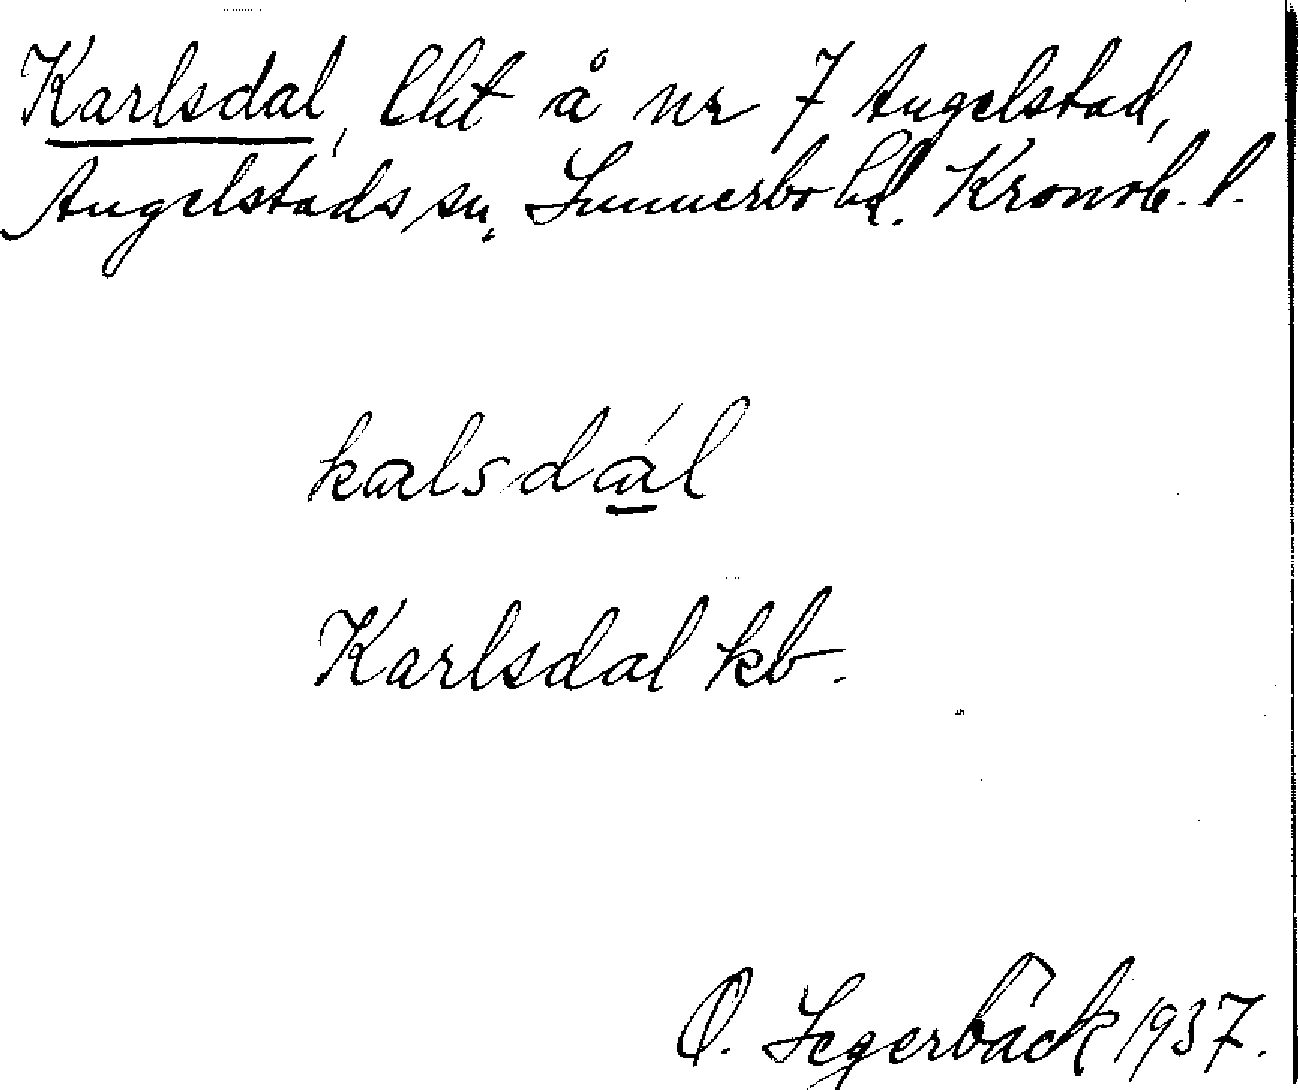 Karlsdal, lht å nr 7 Angelstad,
Angelstads sn, Sunnerbo hd. Kronob. l.
kalsdál
Karlsdal kb.
O. Segerbäck 1937.